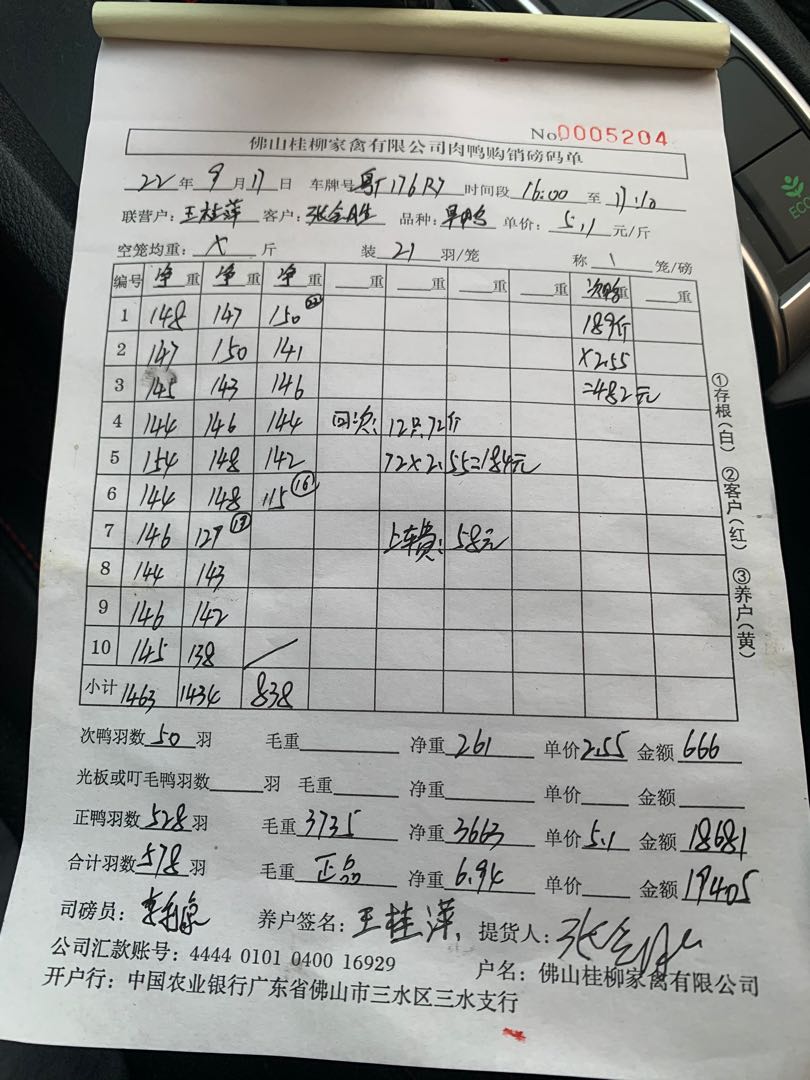 No 0005204
佛山桂柳家禽有限公司肉鸭购销磅码单
22 年 9 月 17 日 车牌号 粤T176R7 时间段 16:00 至 17:10
联营户: 王桂萍 客户: 张 品种: 单价: 5.1 元/斤
空笼均重: X 斤 装 21 羽/笼 称 1 笼/磅
编号 净重 净重 净重 重 重 重 重 次鸭重 重
1 148 147 150 ㉒ 189斤
2 147 150 141 ×2.55
3 145 143 146 =482元
4 144 146 144 回次: 12只72斤
5 154 148 142 72×2.55=184元
6 144 148 115 ⑯
7 146 129 ⑲ 上车费: 58元
8 144 143
9 146 142
10 145 138 /
小计 1463 1434 838
①存根(白) ②客户(红) ③养户(黄)
次鸭羽数 50 羽 毛重 净重 261 单价 2.55 金额 666
光板或叮毛鸭羽数 羽 毛重 净重 单价 金额
正鸭羽数 528 羽 毛重 3735 净重 3663 单价 5.1 金额 18681
合计羽数 578 羽 毛重 正品 净重 6.94 单价 金额 19405
司磅员: 养户签名: 王桂萍 提货人: 张
公司汇款账号: 4444 0101 0400 16929 户名: 佛山桂柳家禽有限公司
开户行: 中国农业银行广东省佛山市三水区三水支行
ECO